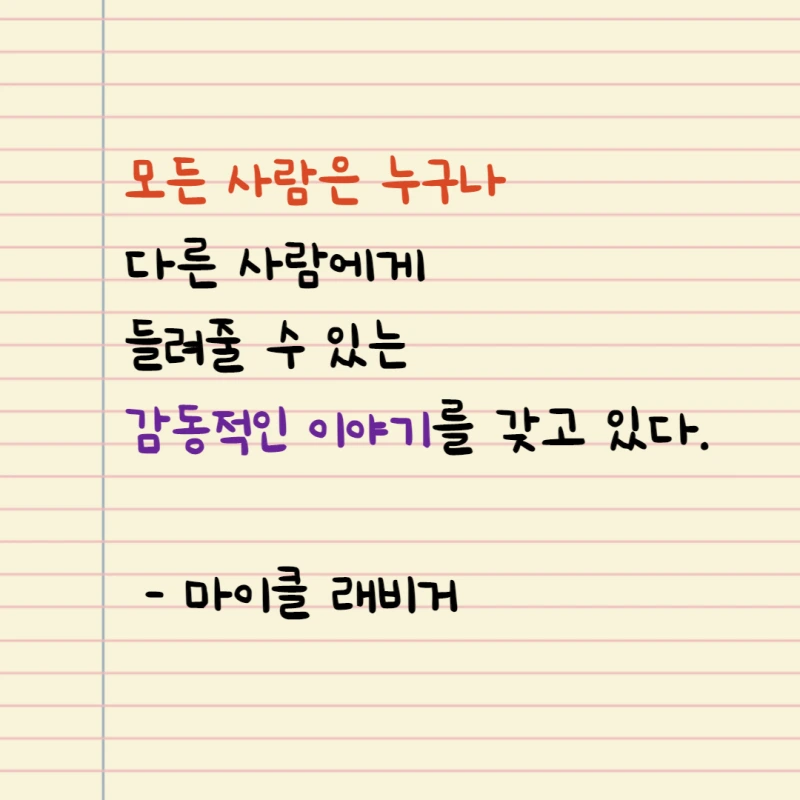 모든 사람은 누구나
다른 사람에게
들려줄 수 있는
감동적인 이야기를 갖고 있다.
- 마이클 래비거